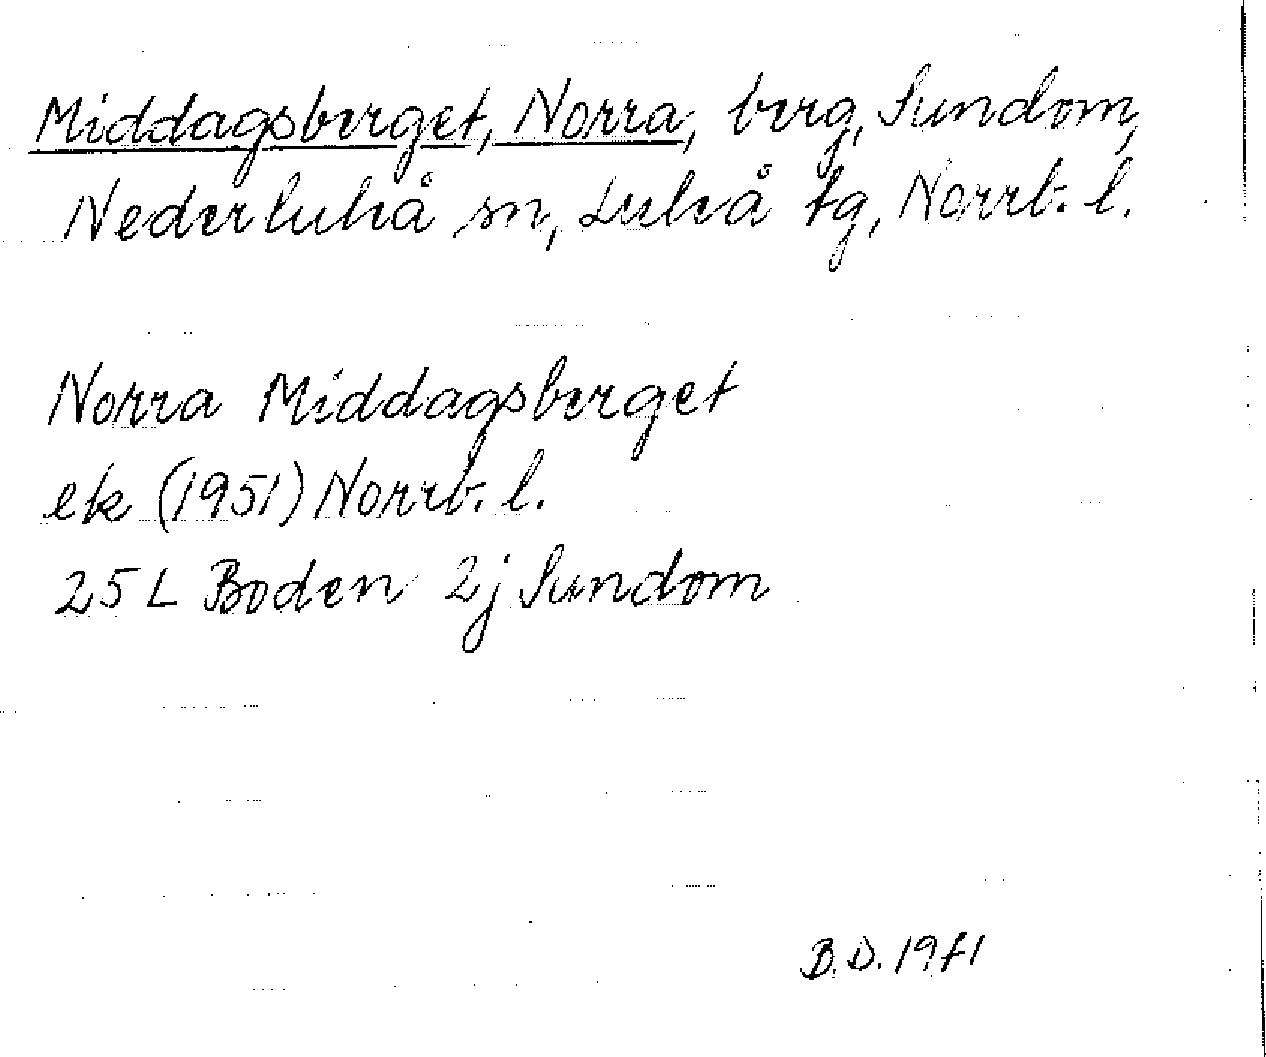 Middagsberget, Norra, berg, Sundom,
Nederluleå sn, Luleå tg, Norrb. l.
Norra Middagsberget
ek (1951) Norrb. l.
25 L Boden 2j Sundom
B.D. 1971